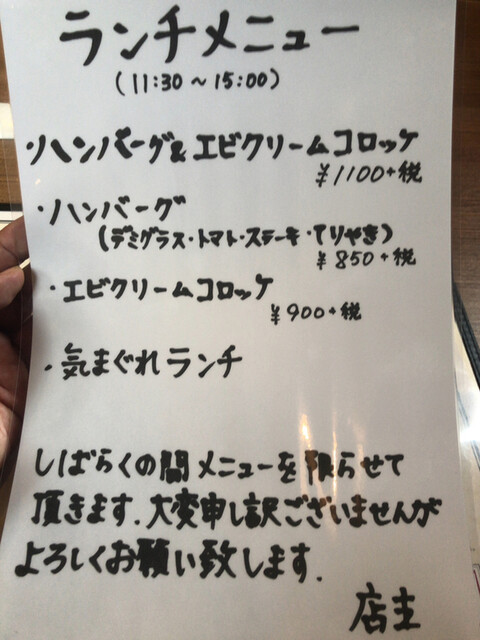 ランチメニュー
(11:30～15:00)
・ハンバーグ&エビクリームコロッケ
¥1100+税
・ハンバーグ
(デミグラス・トマト・ステーキ・てりやき)
¥850+税
・エビクリームコロッケ
¥900+税
・気まぐれランチ
しばらくの間メニューを限らせて
頂きます.大変申し訳ございませんが
よろしくお願い致します.
店主